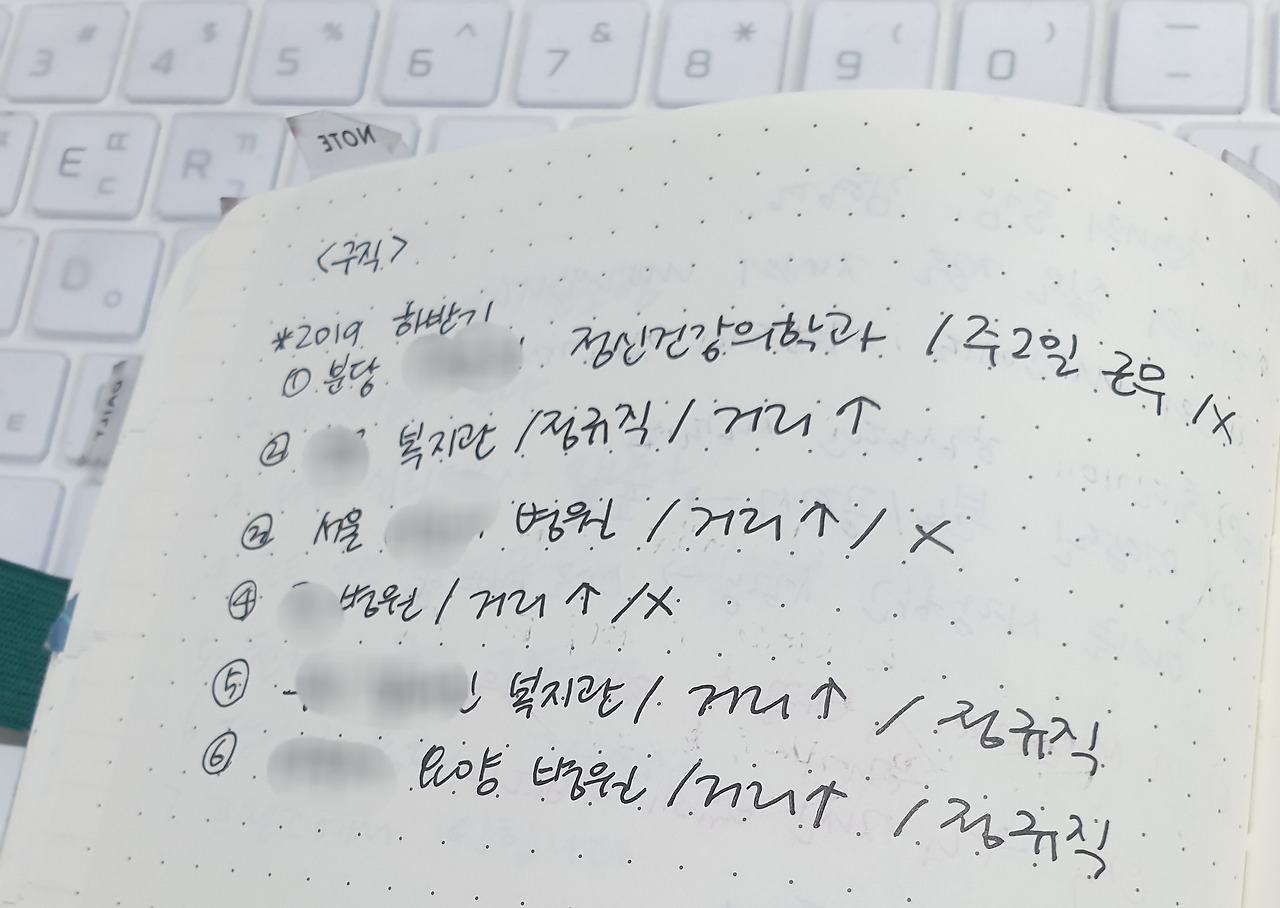 3 #
4 $
5 %
6 ^
7 &
8 *
9 (
0 )
E ㄸ ㄷ
R ㄲ ㄱ
D ㅇ
NOTE
<구직>
*2019 하반기
① 분당 정신건강의학과 / 주2일 근무 /X
② 복지관 /정규직 / 거리 ↑
③ 서울 병원 / 거리 ↑ / X
④ 병원 / 거리 ↑ /X
⑤ 복지관 / 거리 ↑ / 정규직
⑥ 요양 병원 /거리↑ / 정규직